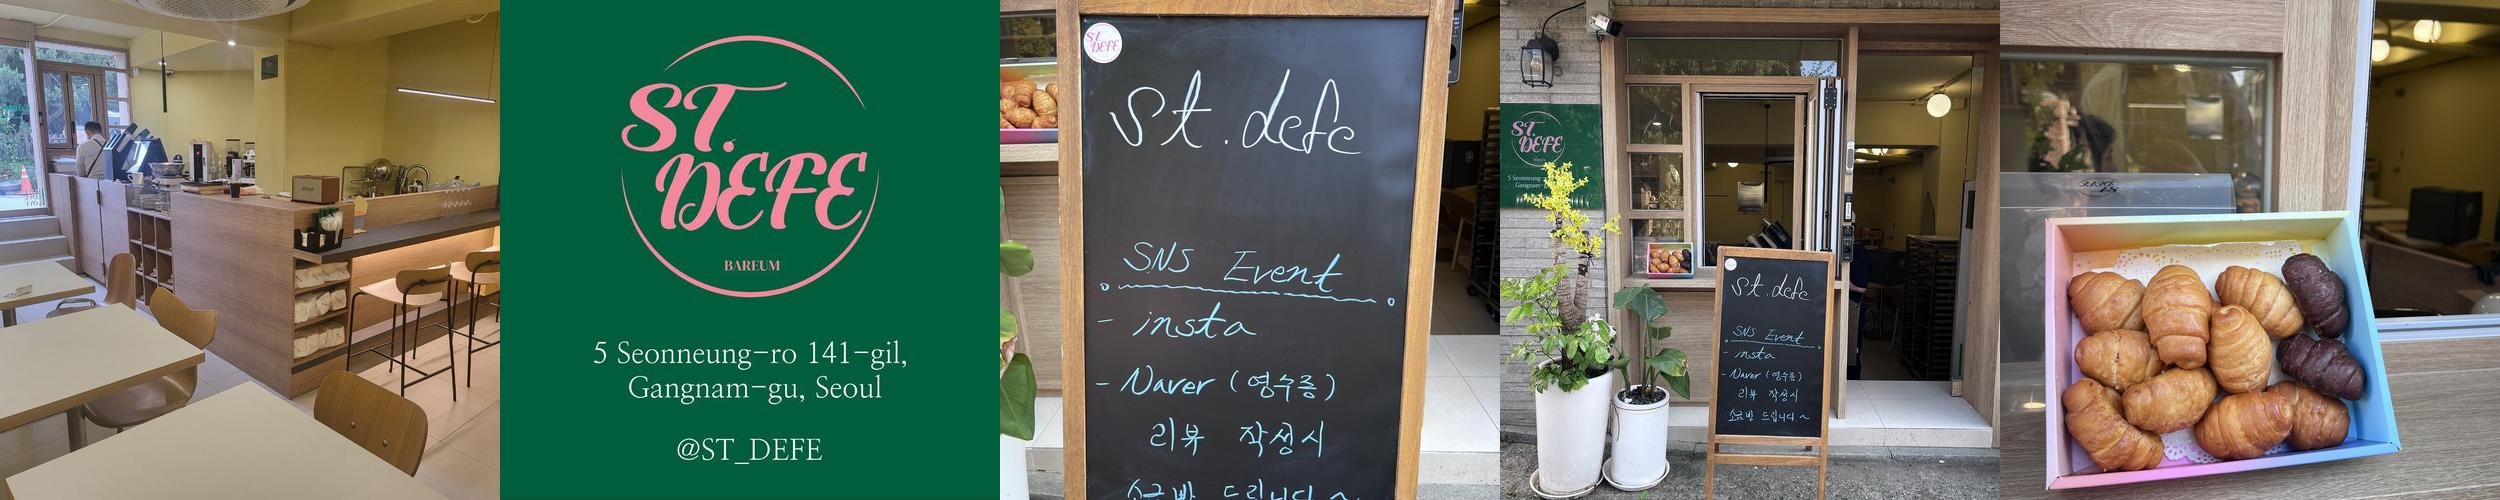 ST.
DEFE
BAREUM
5 Seonneung-ro 141-gil,
Gangnam-gu, Seoul
@ST_DEFE
ST.
DEFE
St.defe
SNS Event
- insta
- Naver (영수증)
리뷰 작성시
소금빵 드립니다~
ST.
DEFE
5 Seonneung-
Gangnam-g
St.defe
SNS Event
- insta
- Naver (영수증)
리뷰 작성시
소금빵 드립니다~